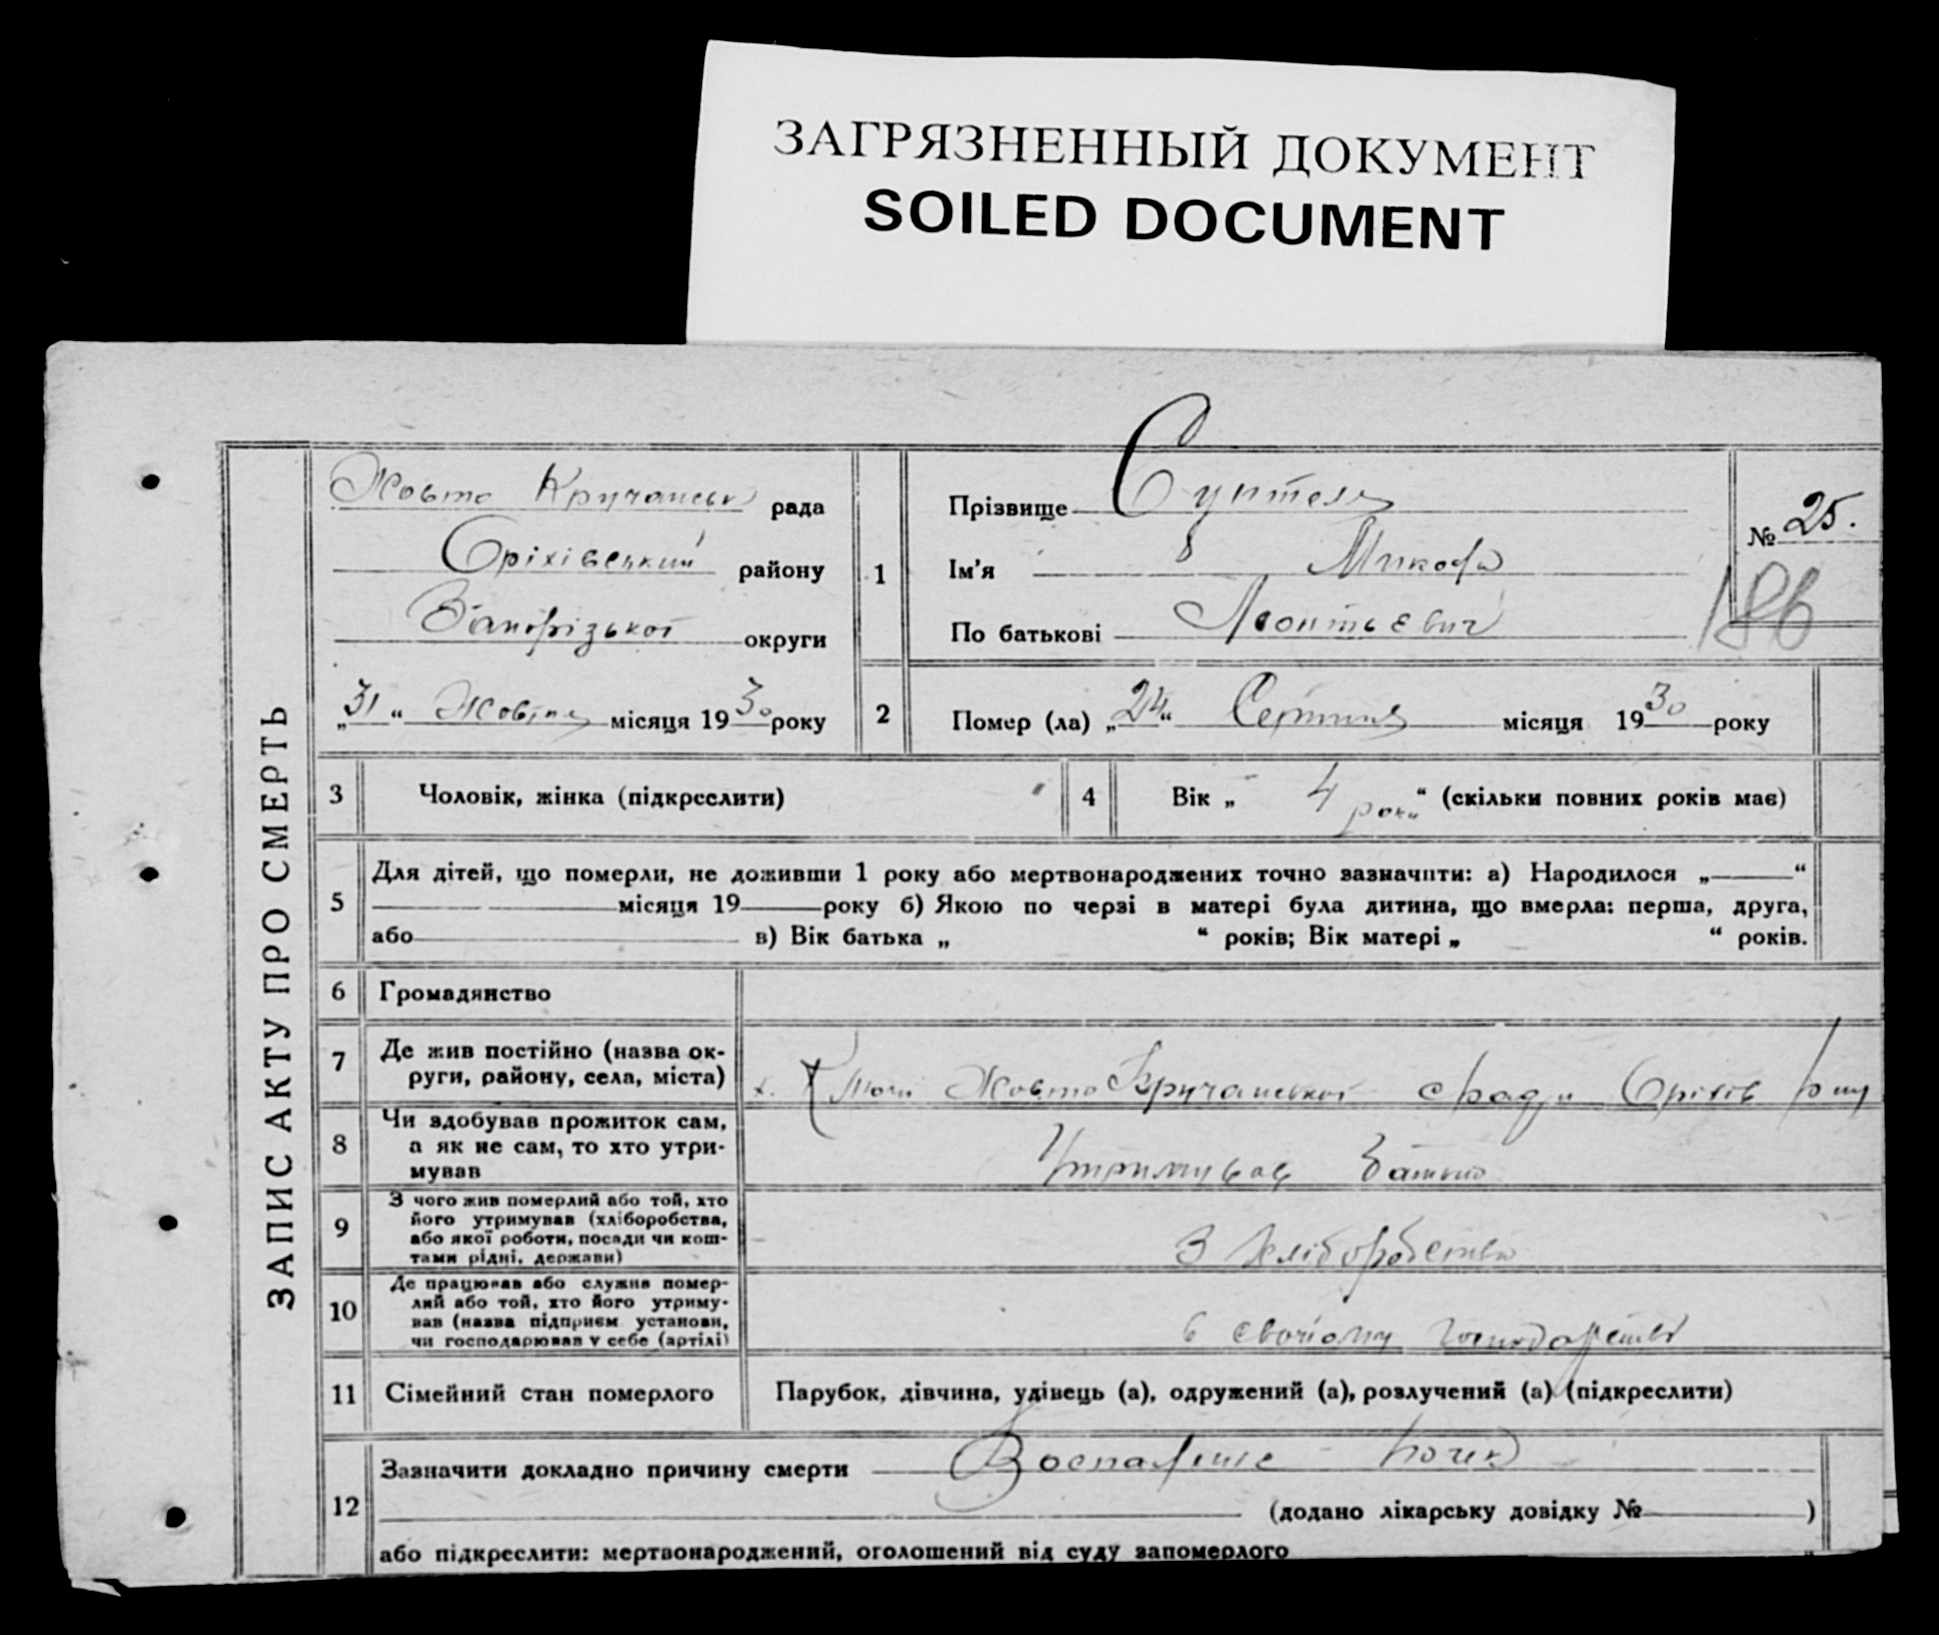 ЗАГРЯЗНЕННЫЙ ДОКУМЕНТ
SOILED DOCUMENT
ЗАПИС АКТУ ПРО СМЕРТЬ
Жовто Кручанськ рада
Оріхівський району
Запорізької округи
„31“ Жовтня місяця 1930 року
1
Прізвище
Ім'я Микола
По батькові Леонтьевич
№ 25.
186
2
Помер (ла) „24“ Серпня місяця 1930 року
3 Чоловік, жінка (підкреслити)
4 Вік „ 4 роки “ (скільки повних років має)
5
Для дітей, що померли, не доживши 1 року або мертвонароджених точно зазначити: а) Народилося „ “
місяця 19 року б) Якою по черзі в матері була дитина, що вмерла: перша, друга,
або в) Вік батька „ “ років; Вік матері „ “ років.
6 Громадянство
7 Де жив постійно (назва ок-
руги, району, села, міста)
х. Жовто Кручанської с/ради Оріхів р-ну
8 Чи здобував прожиток сам,
а як не сам, то хто утри-
мував
Утримував батько
9 З чого жив померлий або той, хто
його утримував (хліборобства,
або якої роботи, посади чи кош-
тами рідні, держави)
З хліборобства
10 Де працював або служив помер-
лий або той, хто його утриму-
вав (назва підприєм установи,
чи господарював у себе (артілі)
в своїому господарстві
11 Сімейний стан померлого
Парубок, дівчина, удівець (а), одружений (а), розлучений (а) (підкреслити)
12
Зазначити докладно причину смерти Воспаление почек
(додано лікарську довідку № )
або підкреслити: мертвонароджений, оголошений від суду запомерлого